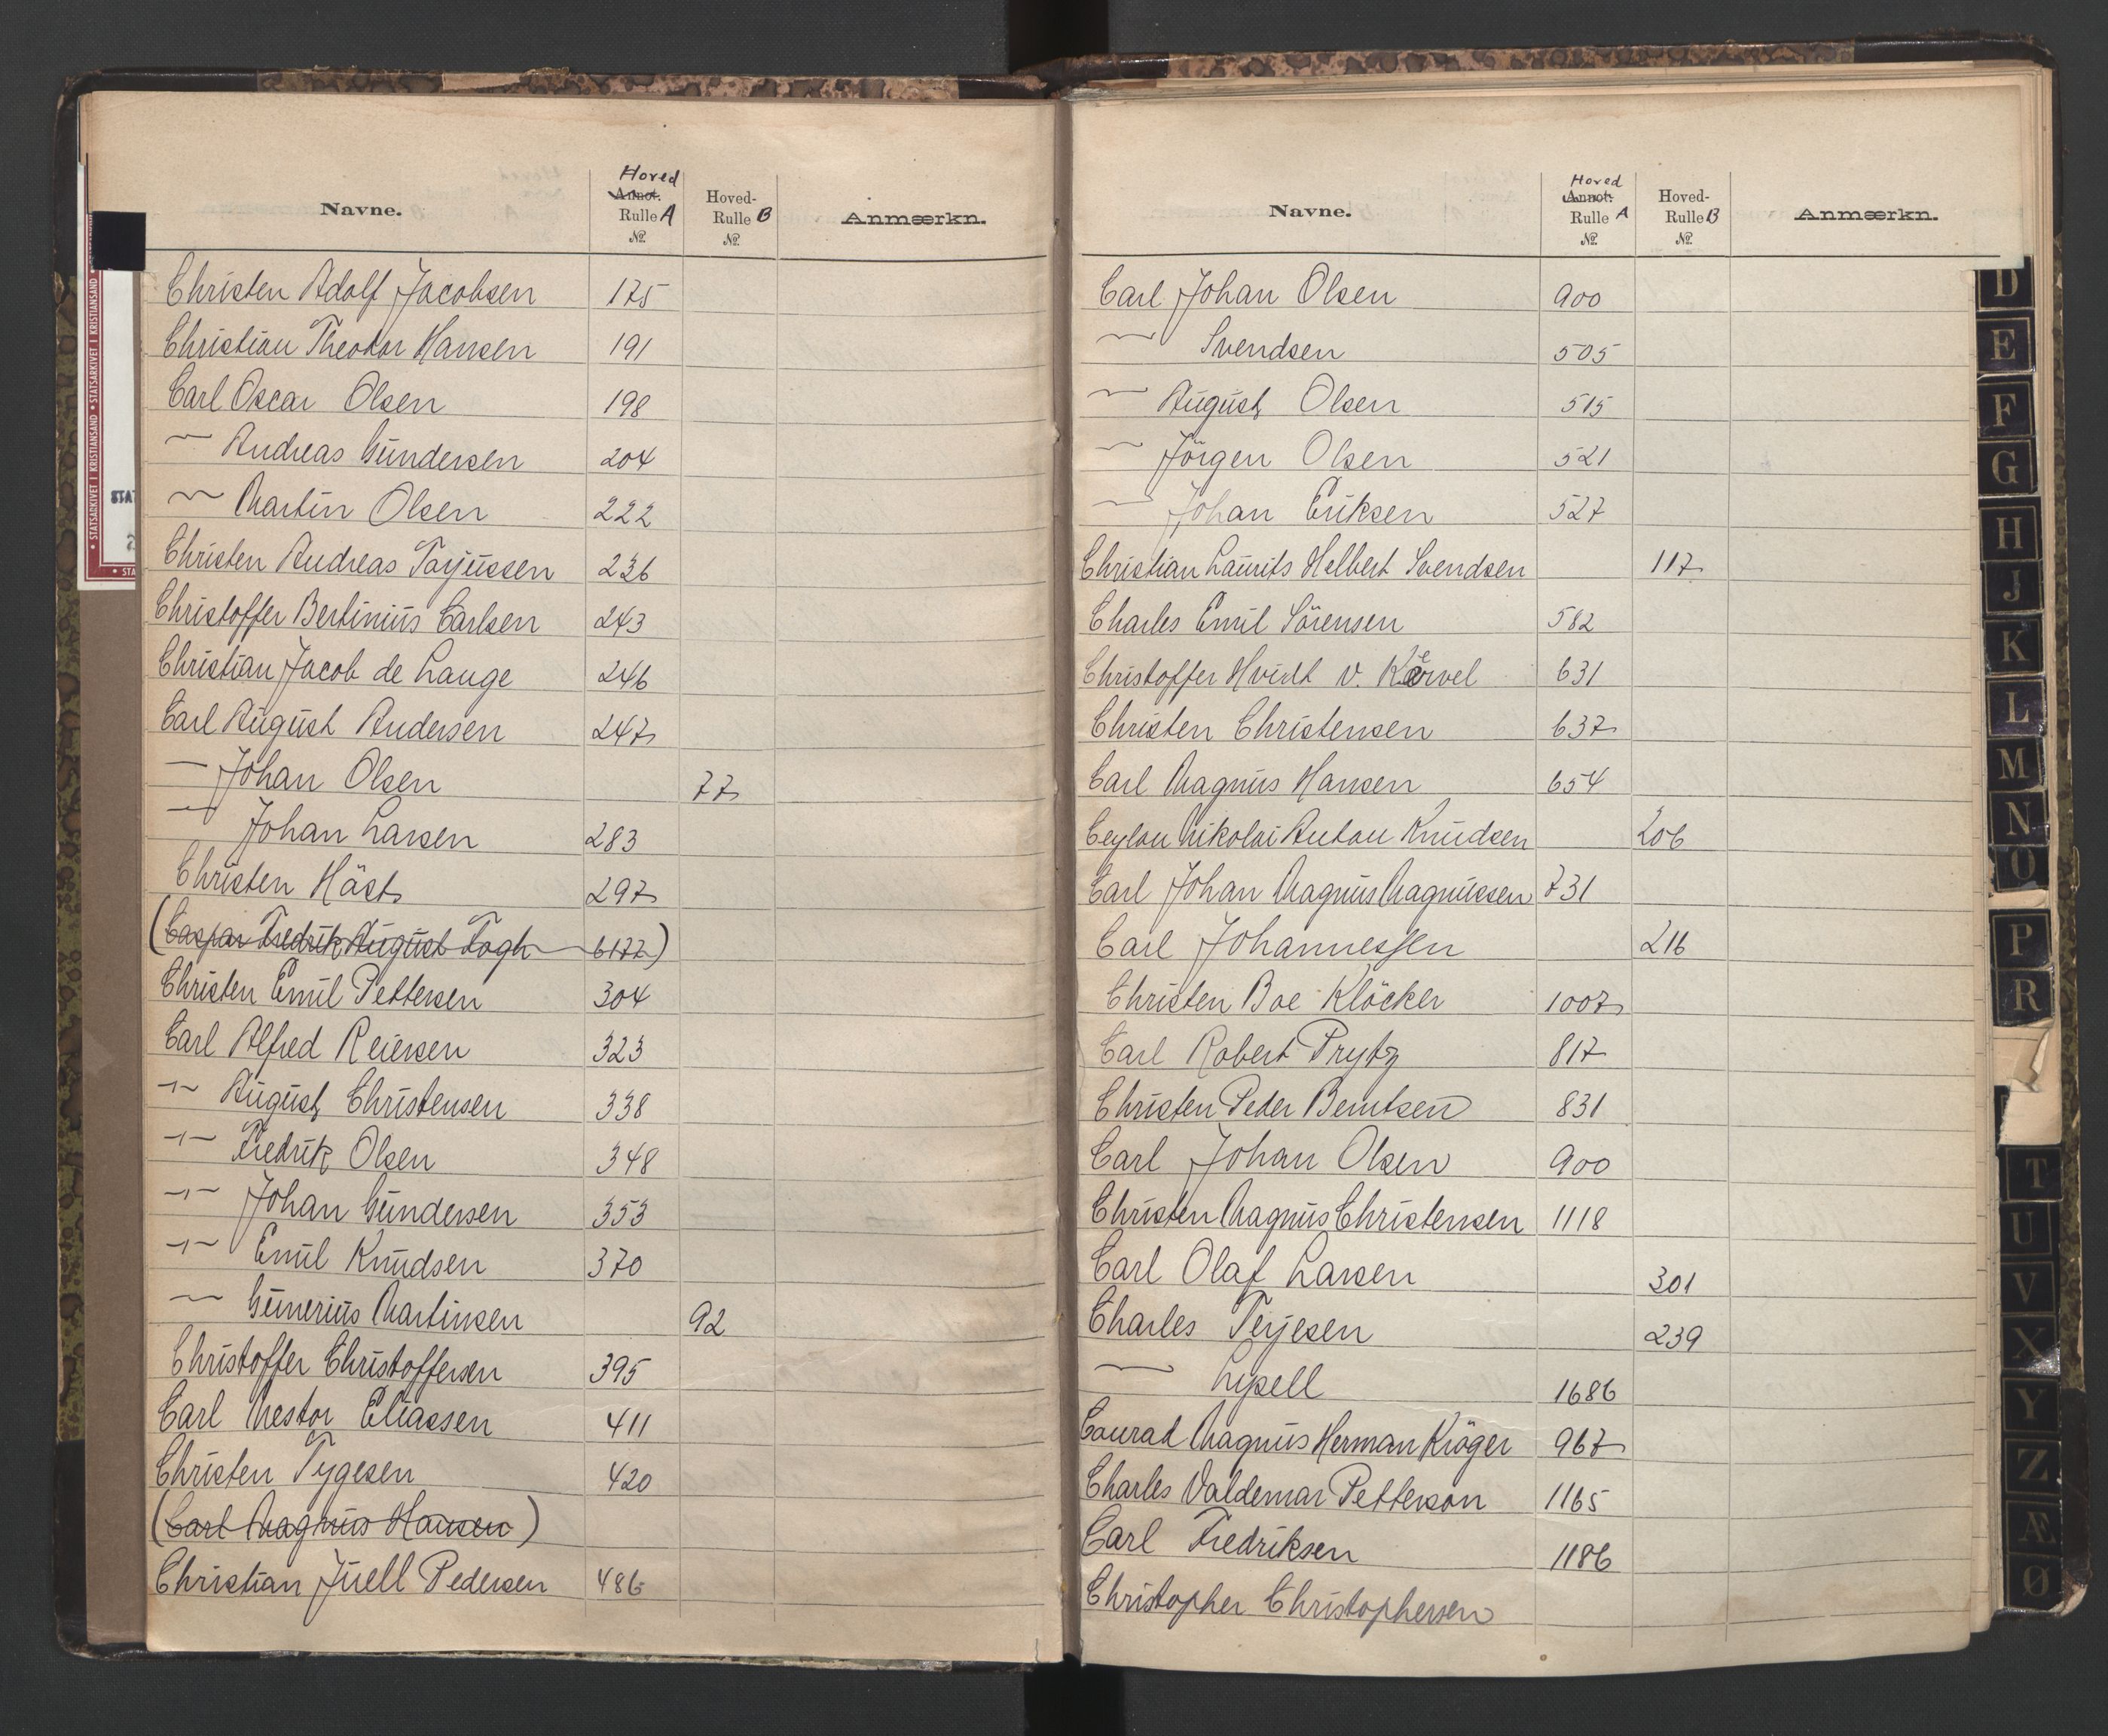 Navne. Hoved Annot. Rulle A № Hoved-Rulle B № Anmærkn.
Christen Adolf Jacobsen 175
Christian Theodor Hansen 191
Carl Oscar Olsen 198
— Andreas Gundersen 204
— Martin Olsen 222
Christen Andreas Torjussen 236
Christoffer Bertinius Carlsen 243
Christian Jacob de Lange 246
Carl August Andersen 247
— Johan Olsen 77
— Johan Larsen 283
Christen Häst 297
(Caspar Fredrik August Fogh 6177)
Christen Emil Pettersen 304
Carl Alfred Reiersen 323
-"- August Christensen 338
-"- Fredrik Olsen 348
-"- Johan Gundersen 353
-"- Emil Knudsen 370
— Gunerius Martinsen 92
Christoffer Christoffersen 395
Carl Nestor Eliassen 411
Christen Tygesen 420
(Carl Magnus Hansen)
Christian Juell Pedersen 486
Navne. Hoved Annot. Rulle A № Hoved-Rulle B № Anmærkn.
Carl Johan Olsen 900
— Svendsen 505
— August Olsen 515
— Jörgen Olsen 521
— Johan Eriksen 527
Christian Laurits Helbert Svendsen 117
Charles Emil Sörensen 582
Christoffer Hvidt v. Kervel 631
Christen Christensen 637
Carl Magnus Hansen 654
Ceylon Nikolai Anton Knudsen 206
Carl Johan Magnus Magnussen 731
Carl Johannessen 216
Christen Boe Klöcker 1007
Carl Robert Prytz 817
Christen Peder Berntsen 831
Carl Johan Olsen 900
Christen Magnus Christensen 1118
Carl Olaf Larsen 301
Charles Terjesen 239
— Lysell 1686
Conrad Magnus Herman Kröger 967
Charles Valdemar Petterson 1165
Carl Fredriksen 1186
Christopher Christophersen
D
E
F
G
H
J
K
L
M
N
O
P
R
T
U
V
X
Y
Z
Æ
Ø
• STATSARKIVET I KRISTIANSAND • STATSARKIVET I KRISTIANSAND •